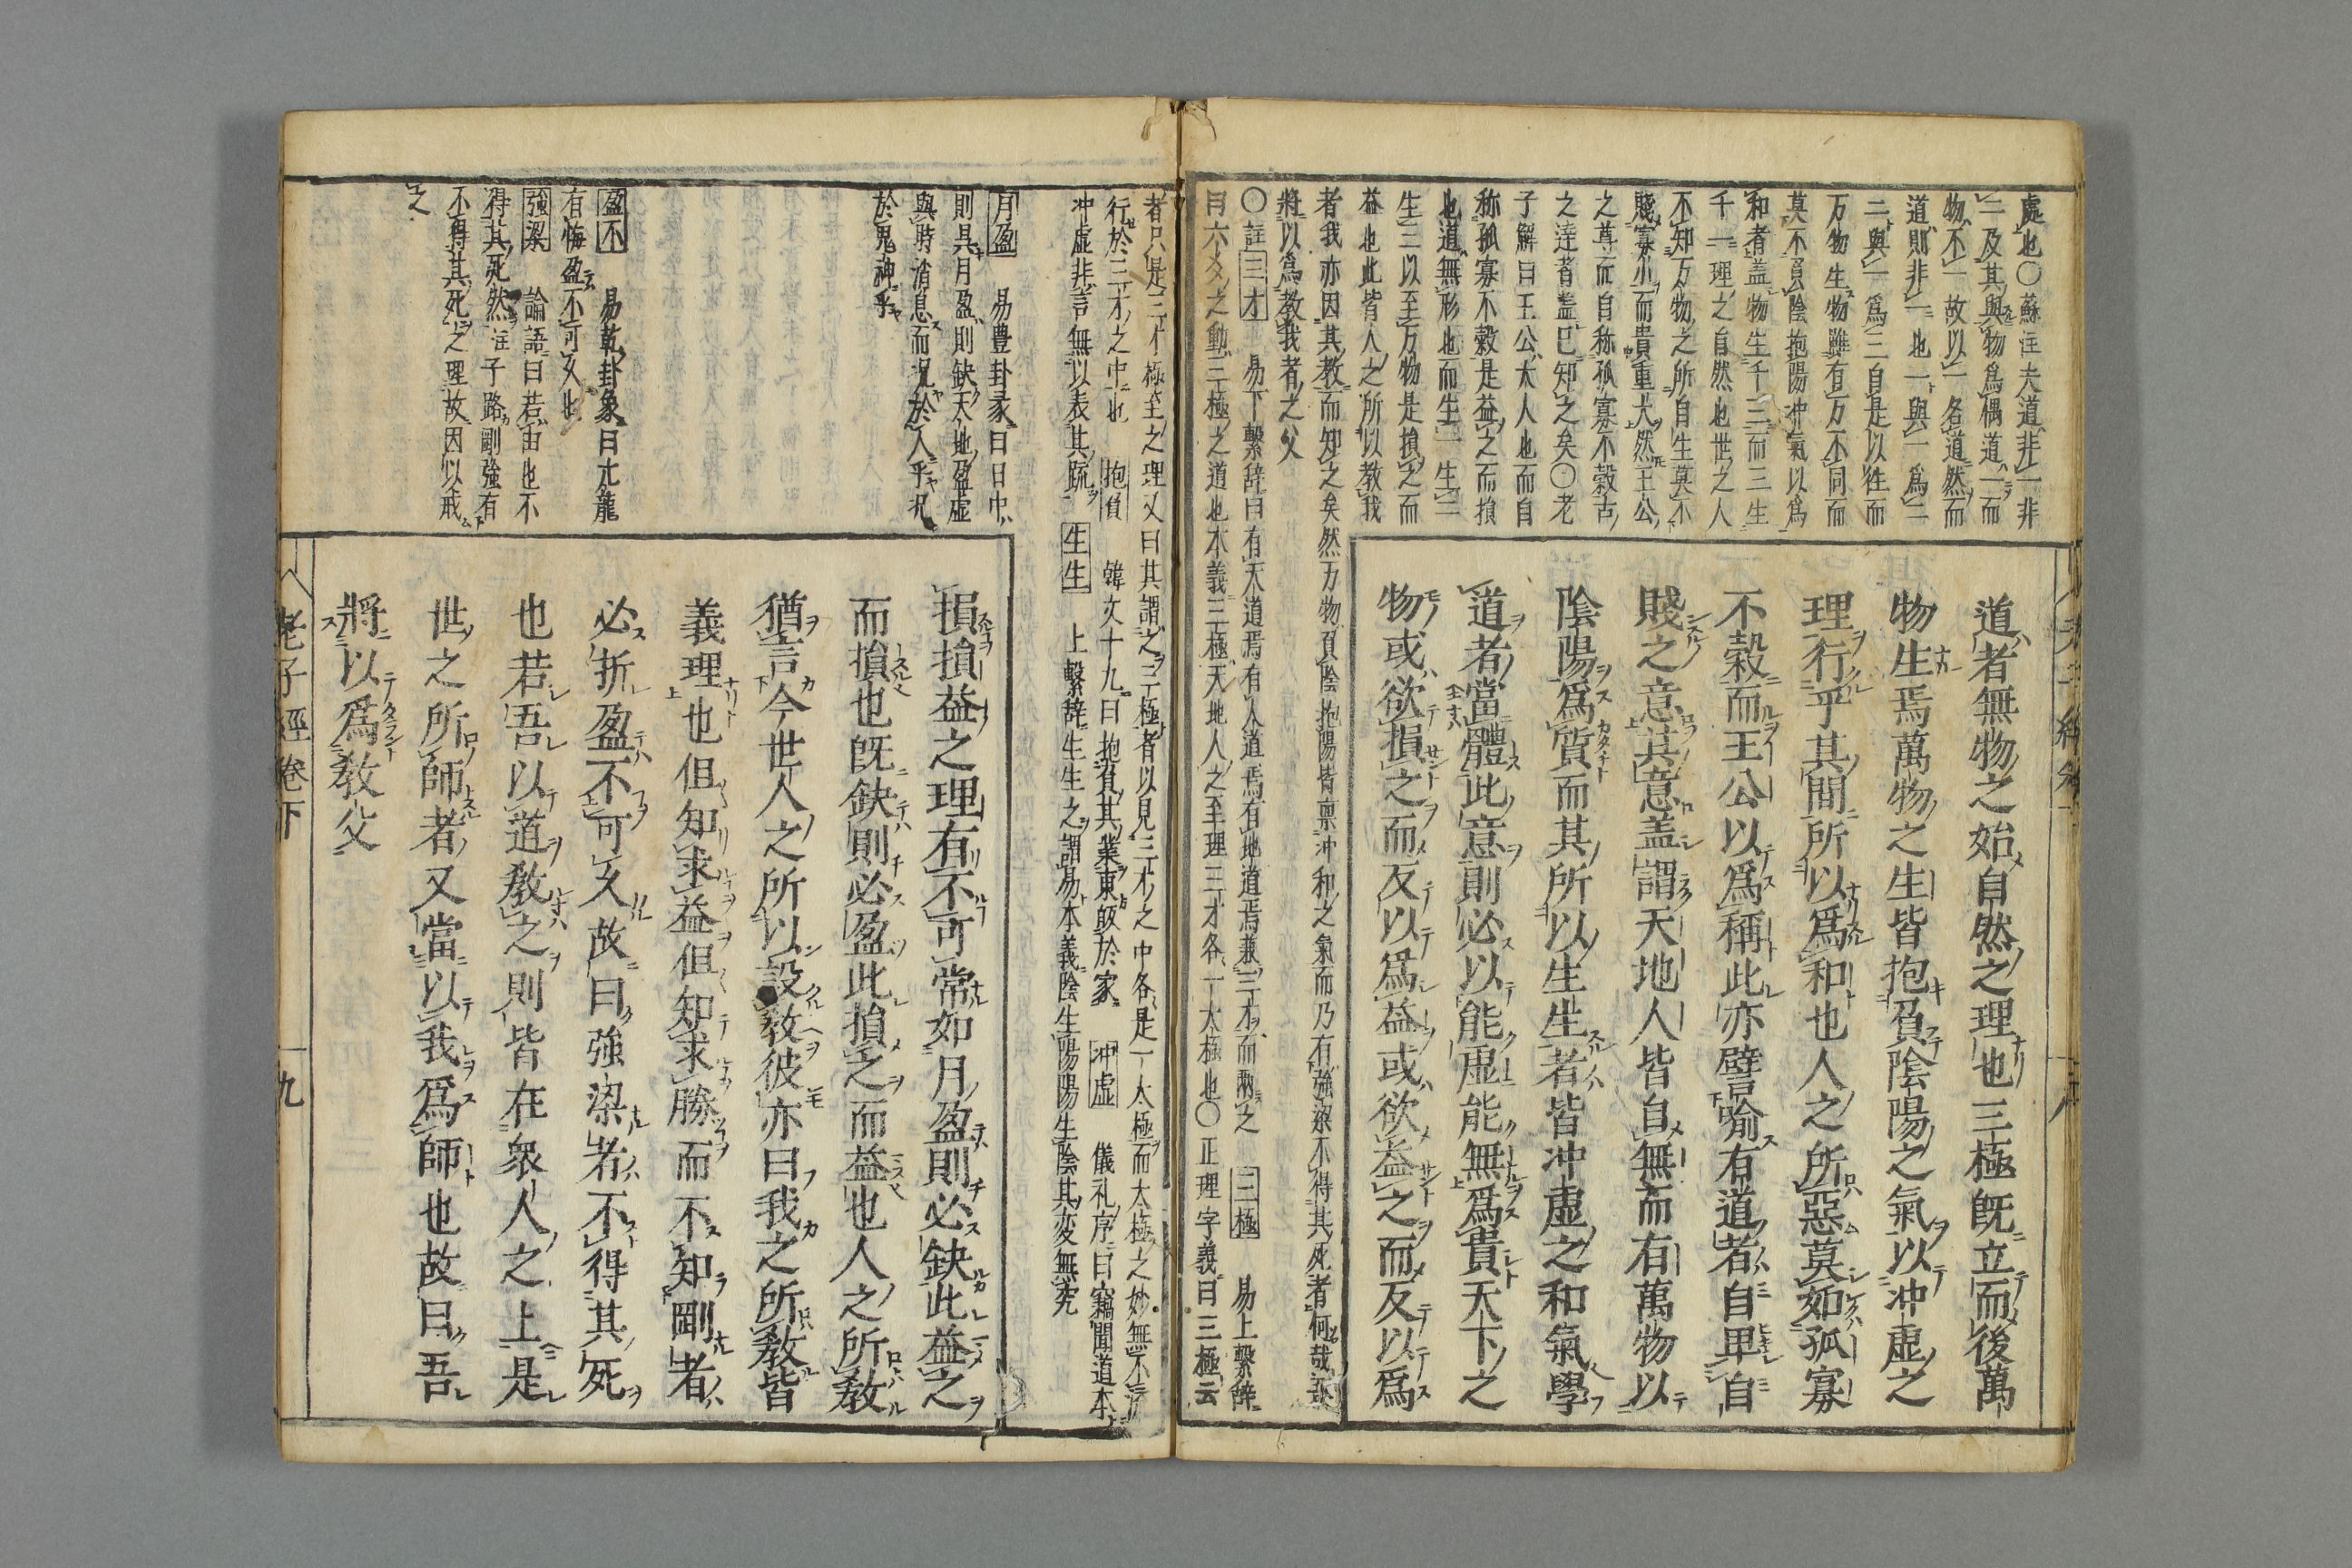 處也○蘇註夫道非一非
二及其與物爲偶道一而
物不一故以一名道然而
道則非一也一與一爲二
二與一爲三自是以徃而
万物生物雖有万不同而
莫不負陰抱陽冲氣以爲
和者盖物生千三而三生
千一理之自然也世之人
不知万物之所自生莫不
賤寡小而貴重大然王公
之尊而自称孤寡不穀古
之達者盖巳知之矣○老
子解曰王公大人也而自
称孤寡不穀是益之而損
也道無形也而生一生二
生三以至万物是損之而
益也此皆人之所以教我
者我亦因其教而知之矣然万物負陰抱陽皆禀冲和之氣而乃有強梁不得其死者何哉
將以爲教我者之父
○註三才　易下繫辞曰有天道焉有人道焉有地道焉兼三才而兩之　三極　易上繫辞
曰六爻之動三極之道也本義三極天地人之至理三才各一大極也○正理字義曰三極云
道者無物之始自然之理也三極旣立而後萬
物生焉萬物之生皆抱負陰陽之氣以冲虛之
理行乎其間所以爲和也人之所惡莫如孤寡
不穀而王公以爲稱此亦譬喻有道者自卑自
賤之意其意盖謂天地人皆自無而有萬物以
陰陽爲質而其所以生生者皆冲虛之和氣學
道者當體此意則必以能虛能無爲貴天下之
物或欲損之而反以爲益或欲益之而反以爲
者只是三才極至之理又曰其謂之三極者以見三才之中各是一太極而太極之妙無不
行於三才之中也　抱負　韓文十九曰抱負其業東皈於家　冲虛　儀礼序曰竊聞道本
冲虛非言無以表其䟽　生生　上繫辞生生之謂易本義陰生陽陽生陰其変無窮
月盈　易豊卦彖曰日中
則昃月盈則缺天地盈虛
與時消息而况於人乎况
於鬼神乎
盈不　易乾卦象曰亢龍
有悔盈不可久也
強梁　論語曰若由也不
得其死然註子路剛強有
不得其死之理故因以戒
之
損損益之理有不可常如月盈則必缺此益之
而損也旣缺則必盈此損之而益也人之所敎
猶言今世人之所以設敎彼亦曰我之所敎皆
義理也但知求益但知求勝而不知剛者
必折盈不可久故曰強梁者不得其死
也若吾以道敎之則皆在衆人之上是
世之所師者又當以我爲師也故曰吾
將以爲敎父
老子經卷下
九